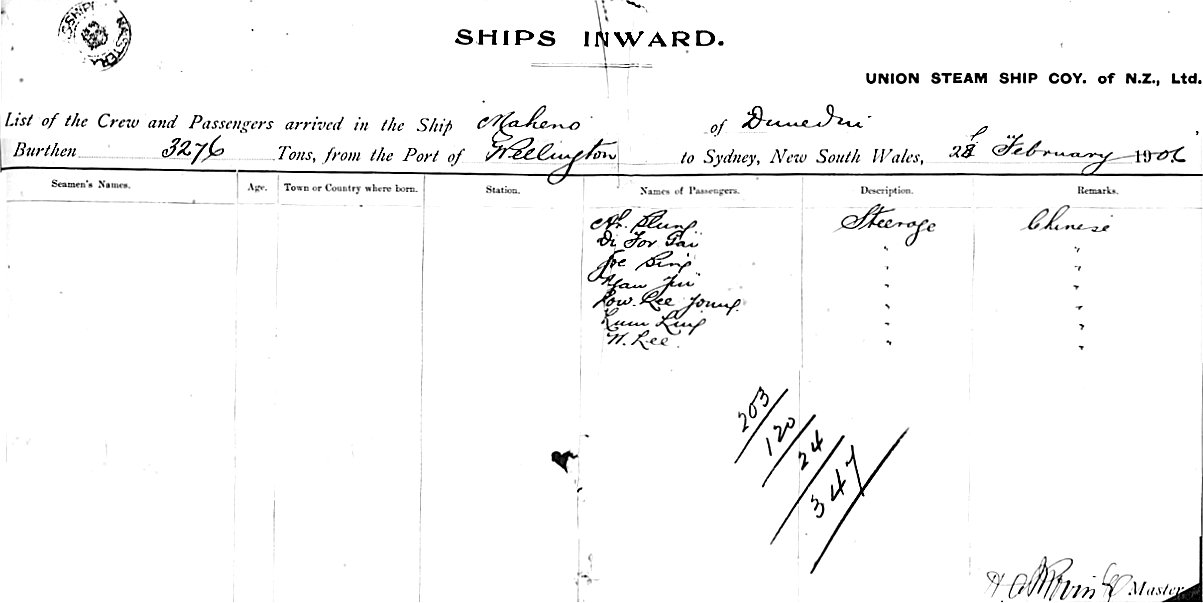 SHIPPI MASTER
SHIPS INWARD.
UNION STEAM SHIP COY. of N.Z., Ltd.
List of the Crew and Passengers arrived in the Ship Maheno of Dunedin
Burthen 3276 Tons, from the Port of Wellington to Sydney, New South Wales, February 1906
Seamen's Names. Age. Town or Country where born. Station. Names of Passengers. Description. Remarks.
Ah Steerage Chinese
" "
Joe " "
" "
Low Lee " "
Lum Ling " "
Lee " "
203
120
24
347
Master